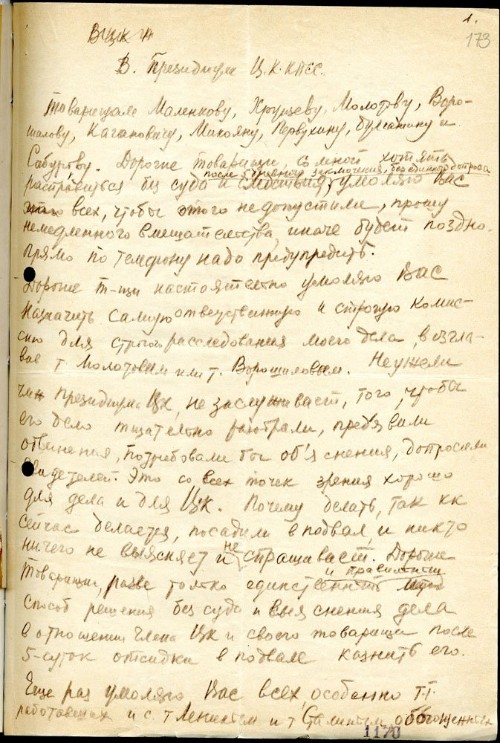 1.
173
В ЦК
В. Президиум Ц.К. КПСС.
Товарищам Маленкову, Хрущеву, Молотову, Воро-
шилову, Кагановичу, Микояну, Первухину, Булганину и
Сабурову. Дорогие товарищи, со мной хотят
после 5 дневного заключения, без единого допроса
расправиться без суда и следствия, умоляю Вас
всех, чтобы этого недопустили, прошу
немедленного вмешательства, иначе будет поздно.
Прямо по телефону надо предупредить.
Дорогие т-щи настоятельно умоляю Вас
назначить самую ответственную и строгую комис-
сию для строгого расследования моего дела, возгла-
ве т. Молотовым или т. Ворошиловым. Неужели
член Президиума ЦК, не заслуживает, того, чтобы
его дело тщательно разобрали, предъявили
обвинения, потребовали бы об'яснения, допросили
свидетелей. Это со всех точек зрения хорошо
для дела и для ЦК. Почему делать, так как
сейчас делается, посадили в подвал, и никто
ничего не выясняет и не спрашивает. Дорогие
товарищи, разве только единственный и правильный
способ решения без суда и выяснения дела
в отношении члена ЦК и своего товарища после
5-суток отсидки в подвале казнить его.
Еще раз умоляю Вас всех, особенно т.т.
работавших и с т Лениным и т Сталиным,
1170